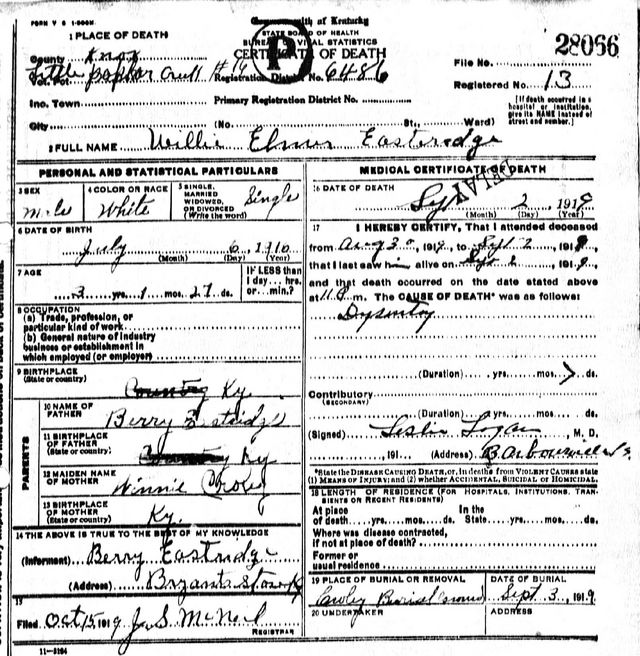 FORM V S 1-500M
Commonwealth of Kentucky
STATE BOARD OF HEALTH
BUREAU OF VITAL STATISTICS
CERTIFICATE OF DEATH
P
28066
1 PLACE OF DEATH
County Knox
Vot. Pct. Little Poplar Creek #16 Registration District No. 6486
File No.
Registered No. 13
Inc. Town Primary Registration District No.
City (No. St., Ward)
[If death occurred in a hospital or institution, give its NAME instead of street and number.]
2 FULL NAME Willie Elmer Eastridge
PERSONAL AND STATISTICAL PARTICULARS
3 SEX Male
4 COLOR OR RACE White
5 SINGLE, MARRIED WIDOWED, OR DIVORCED (Write the word) Single
6 DATE OF BIRTH
July 6, 1916
(Month) (Day) (Year)
7 AGE
3 yrs. 1 mos. 27 ds.
IF LESS than 1 day... hrs. or... min.?
8 OCCUPATION
(a) Trade, profession, or particular kind of work
(b) General nature of industry business or establishment in which employed (or employer)
9 BIRTHPLACE
(State or country)
Country Ky.
PARENTS
10 NAME OF FATHER Berry Eastridge
11 BIRTHPLACE OF FATHER (State or country) Ky
12 MAIDEN NAME OF MOTHER Winnie
13 BIRTHPLACE OF MOTHER (State or country) Ky.
14 THE ABOVE IS TRUE TO THE BEST OF MY KNOWLEDGE
(Informant) Berry Eastridge
(Address) Bryants Store Ky
15
Filed Oct 15, 1919 J S McNeil
REGISTRAR
11-3184
MEDICAL CERTIFICATE OF DEATH
DELAY
16 DATE OF DEATH
2 1919
(Month) (Day) (Year)
17 I HEREBY CERTIFY, That I attended deceased
from Aug 30, 1919, to Sept 2, 1919,
that I last saw him alive on Sept 2, 1919,
and that death occurred on the date stated above
at 11 P m. The CAUSE OF DEATH* was as follows:
Dysentry
(Duration) yrs. mos. ds.
Contributory
(SECONDARY)
(Duration) yrs. mos. ds.
(Signed) Leslie Logan, M. D.
, 191 (Address) Barbourville Ky
*State the DISEASE CAUSING DEATH, or, in deaths from VIOLENT CAUSES state (1) MEANS OF INJURY; and (2) whether ACCIDENTAL, SUICIDAL or HOMICIDAL.
18 LENGTH OF RESIDENCE (FOR HOSPITALS, INSTITUTIONS, TRANSIENTS OR RECENT RESIDENTS)
At place of death yrs. mos. ds. In the State yrs. mos. ds.
Where was disease contracted, if not at place of death?
Former or usual residence
19 PLACE OF BURIAL OR REMOVAL
Burial Ground
DATE OF BURIAL
Sept 3, 1919
20 UNDERTAKER
ADDRESS